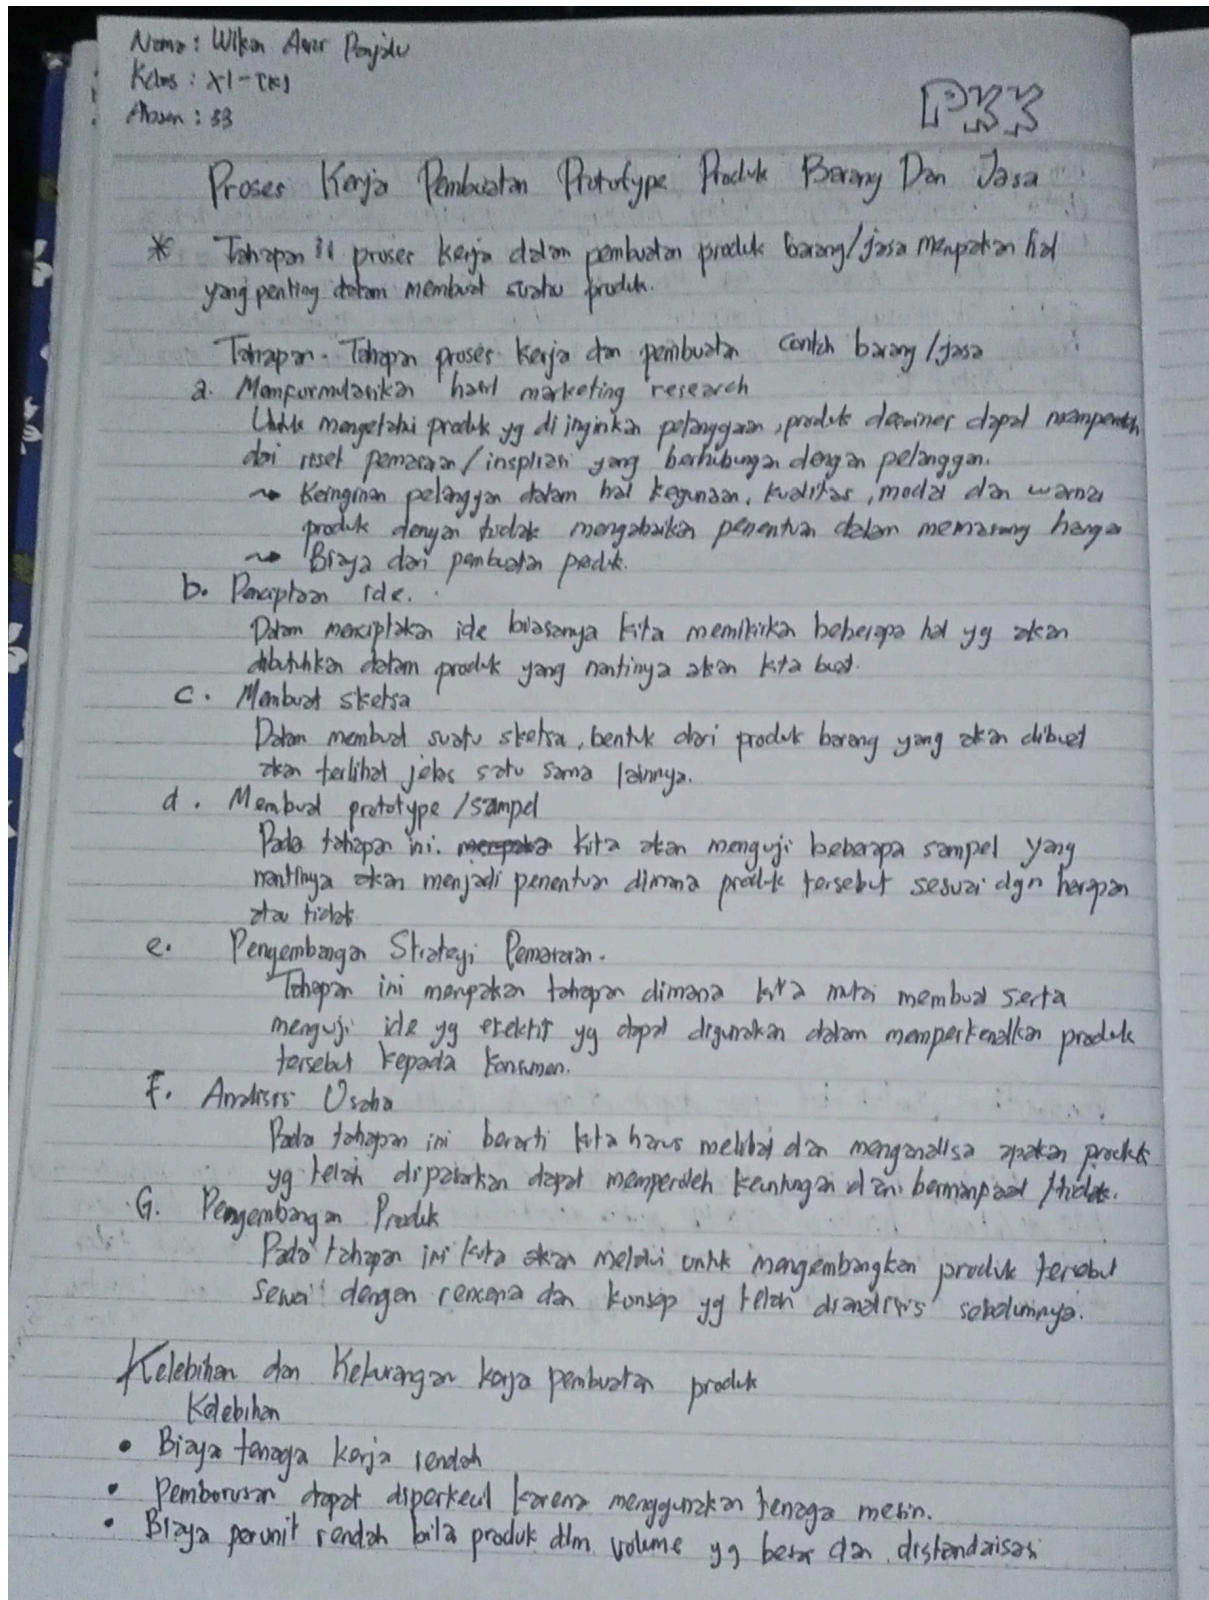 Nama : Wikan Panjalu
Kelas : XI-TKJ
Absen : 33
PKK
Proses Kerja Pembuatan Prototype Produk Barang Dan Jasa
* Tahapan proses kerja dalam pembuatan produk barang/jasa merupakan hal
yang penting dalam membuat suatu produk.
Tahapan-Tahapan proses kerja dan pembuatan contoh barang/jasa
a. Memformulasikan hasil marketing research
Untuk mengetahui produk yg di inginkan pelanggaan, produk desainer dapat
dari riset pemasaran/inspirasi yang berhubungan dengan pelanggan.
~> Keinginan pelanggan dalam hal kegunaan, kualitas, model dan warna
produk dengan tidak mengabaikan penentuan dalam memasang harga
~> Biaya dari pembuatan produk.
b. Penciptaan ide.
Dalam menciptakan ide biasanya kita memikirkan beberapa hal yg akan
dibutuhkan dalam produk yang nantinya akan kita buat.
c. Membuat sketsa
Dalam membuat suatu sketsa, bentuk dari produk barang yang akan dibuat
akan terlihat jelas satu sama lainnya.
d. Membuat prototype/sampel
Pada tahapan ini. kita akan menguji beberapa sampel yang
nantinya akan menjadi penentuan dimana produk tersebut sesuai dgn harapan
atau tidak
e. Pengembangan Strategi Pemasaran.
Tahapan ini merupakan tahapan dimana kita mulai membuat serta
menguji ide yg efektif yg dapat digunakan dalam memperkenalkan produk
tersebut kepada konsumen.
F. Analisis Usaha
Pada tahapan ini berarti kita harus melihat dan menganalisa apakah produk
yg telah dipasarkan dapat memperoleh keuntungan dan bermanfaat/tidak.
G. Pengembangan Produk
Pada tahapan ini kita akan mulai untuk mengembangkan produk tersebut
sesuai dengan rencana dan konsep yg telah dianalisis sebelumnya.
Kelebihan dan Kekurangan kerja pembuatan produk
Kelebihan
• Biaya tenaga kerja rendah
• Pemborosan dapat diperkecil karena menggunakan tenaga mesin.
• Biaya perunit rendah bila produk dlm volume yg besar dan distandarisasi